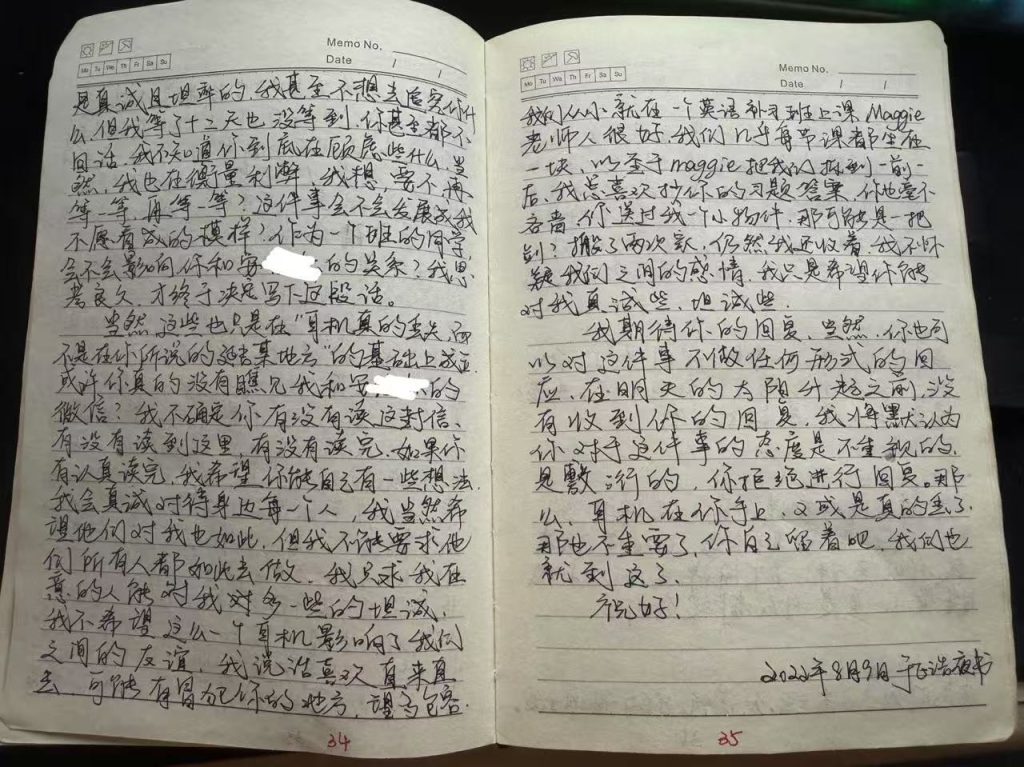 Memo No.
Mo Tu We Th Fr Sa Su
Date / /
是真诚且坦率的,我甚至不想去追究你什
么,但我等了十二天也没等到,你甚至都不
回话,我不知道你到底在顾虑些什么,当
然,我也在衡量利弊,我想,要不再
等一等,再等一等?这件事会不会发展成我
不愿看成的模样?作为一个班的同学
会不会影响你和安 的关系?我思
考良久,才终于决定写下这段话。
当然,这些也只是在“耳机真的丢失,而
不是在你所说的 某地方”的基础上成立,
或许你真的没有瞧见我和安 的
微信?我不确定你有没有读这封信、
有没有读到这里,有没有读完,如果你
有认真读完,我希望你能自己有一些想法.
我会真诚对待身边每一个人,我当然希
望他们对我也如此,但我不能要求他
们所有人都如此去做,我只求我在
意的人能对我对多一些的坦诚,
我不希望这么一个耳机影响了我们
之间的友谊,我说话喜欢直来直
去,可能有冒犯你的地方,望多包容.
34
Memo No.
Mo Tu We Th Fr Sa Su
Date / /
我们从小就在一个英语补习班上课,Maggie
老师人很好,我们几乎每节课都坐在
一块,以至于maggie把我们拆到一前一
后,我总喜欢抄你的习题答案,你也毫不
吝啬,你送过我一个小物件,那可能是一把
剑?搬了两次家,仍然我还收着,我不怀
疑我们之间的感情,我只是希望你能
对我真诚些,坦诚些.
我期待你的回复,当然,你也可
以对这件事不做任何形式的回
应,在明天的太阳升起之前,没
有收到你的回复,我将默认为
你对于这件事的态度是不重视的,
是敷衍的,你拒绝进行回复。那
么,耳机在你手上,又或是真的丢了,
那也不重要了,你自己留着吧,我们也
就到这了.
祝好!
2022年8月9日 于 夜书
35